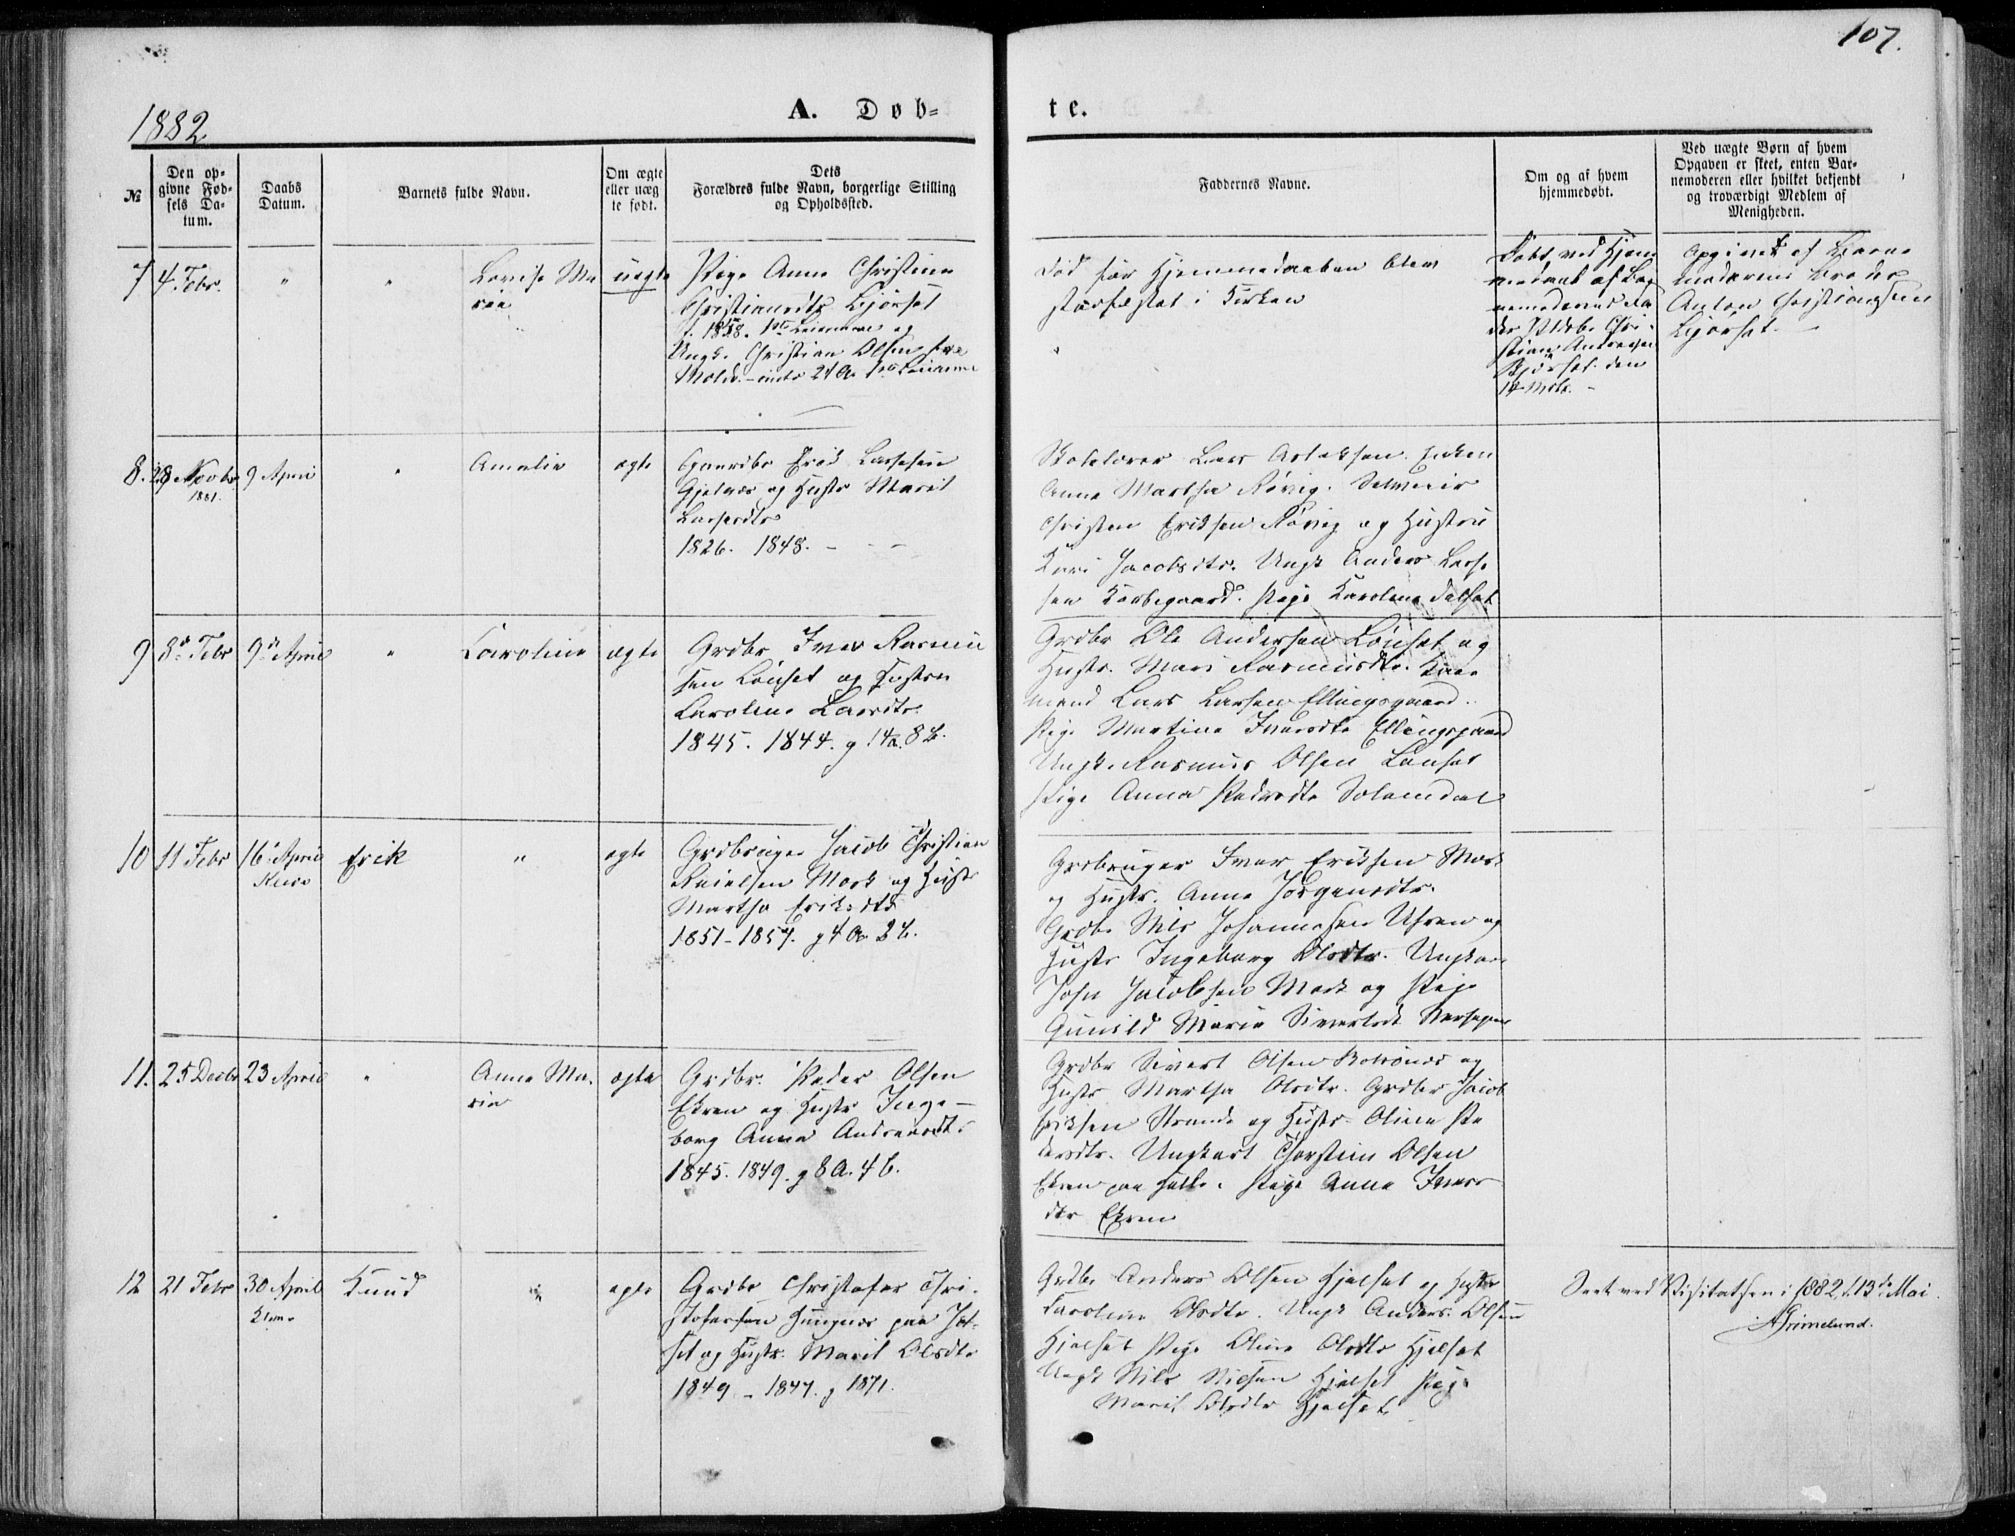 107.
1882
A. Døb=
te.
№
Den op=
givne Fød=
sels Da=
tum.
Daabs
Datum.
Barnets fulde Navn.
Om ægte
eller uæg
te født.
Dets
Forældres fulde Navn, borgerlige Stilling
og Opholdssted.
Faddernes Navne.
Om og af hvem
hjemmedøbt.
Ved uægte Børn af hvem
Opgaven er skeet, enten Bar=
nemoderen eller hvilket bekjendt
og troværdigt Medlem af
Menigheden.
7
4 Febr.
"
"
Lovise Ma
rea
uegte
Pige Anne Christine
Christiansdtr Gjørset
f. 1858. 1ste Leiermaal og
Ungk. Christian Olsen
Molde 24 A. 1ste Leiermaal
Død før Hjemmedaaben blev
stadfæstet i Kirken
Døbt ved Hjem
medaab af Bar
nemoderens Fa
der Chri
stian Andersen
Gjørset den
14 Mts.
Opgivet af Barne
moderens Broder
Anton Christiansen
Gjørset.
8.
28 Novbr
1881.
9 April
"
Amalie
ægte
Gaardbr Erik Larsen
Gjelnes og Hustr Marit
Larsdtr
1826. 1848.
Skolelærer Lars Aslaksen. Enken
Anne Martha Røvig. Selveier
Christen Eriksen Røvig og Hustru
Kari Jacobsdtr. Ungk Anders Lars
sen Korsgaard. Pige Karoline Dalset
9
8de Febr
9de April
"
Caroline
ægte
Grdbr Iver Rasmu
sen Lønset og Hustru
Caroline Larsdtr.
1845. 1844. g 14a. 8 b.
Grdbr Ole Andersen Lønset og
Hustr. Mari Rasmusdtr. Kaar
mand Lars Larsen Ellingsgaard.
Pige Martine Iversdtr Ellingsgaard
Ungk. Rasmus Olsen Lønset
Pige Anna Pedersdtr Solemdal
10
11 Febr
16 April
Kleive
Erik
"
ægte
Grdbruger Jacob Christian
Knielsen Mork og Hustr
Martha Eriksdtr
1851-1857. g 4 A 2 b.
Grdbruger Iver Eriksen Mork
og Hustr. Anne Jørgensdtr.
Grdbr Nils Johannesen Usren og
Hustr Ingeborg Olsdtr. Ungkar
John Jacobsen Mork og Pige
Gunild Marie Sivertsdt
11.
25 Decbr
23 April
"
Anne Ma.
rie
ægte
Grdbr. Peder Olsen
Ekren og Hustr Inge-
borg Anna Andreasdtr
1845. 1849. g 8 A. 4 b.
Grdbr Sivert Olsen Bolsønes og
Hustr Martha Olsdtr. Grdbr Jacob
Eriksen Strande og Hustr. Oline Pe
dersdtr. Ungkart Thorstein Olsen
Ekren paa Hatle. Pige Anne Ivers
dtr Ekren
12
21 Febr
30 April
Kleive
Knud
"
ægte
Grdbr Christofer Chri.
stofersen Hungnes paa Hel-
set og Hustr. Marit Olsdtr
1849 - 1847. g 1871.
Grdbr Anders Olsen Hjelset og Hustr
Caroline Olsdtr. Ungk Anders Olsen
Hjelset Pige Oline Olsdtr Hjelset
Ungk Nils Nielsen Hjelset Pige
Marit Olsdtr Hjelset
Seet ved Visitatsen i 1882 d. 13de Mai.
A Grimelund.